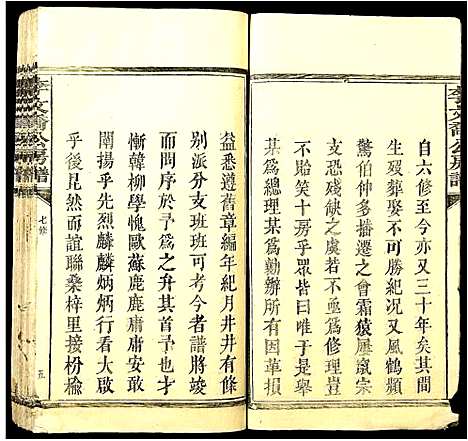 自六修至今亦又三十年矣其間
生殁葬娶不可勝紀况又風鶴頻
驚伯仲多播遷之會霜猿屢哀宗
支恐殘缺之虞若不亟爲修理豈
不貽笑十房乎眾皆曰唯于是舉
某爲總理某爲勷辦所有因革損
益悉遵舊章編年紀月井井有條
别派分支班班可考今者譜將竣
而問序於予爲之升其首予也才
慚韓柳學愧歐蘇鹿鹿庸庸安敢
闡揚乎先烈麟麟炳炳行看大啟
乎後昆然而誼聯桑梓里接枌榆
七修
五